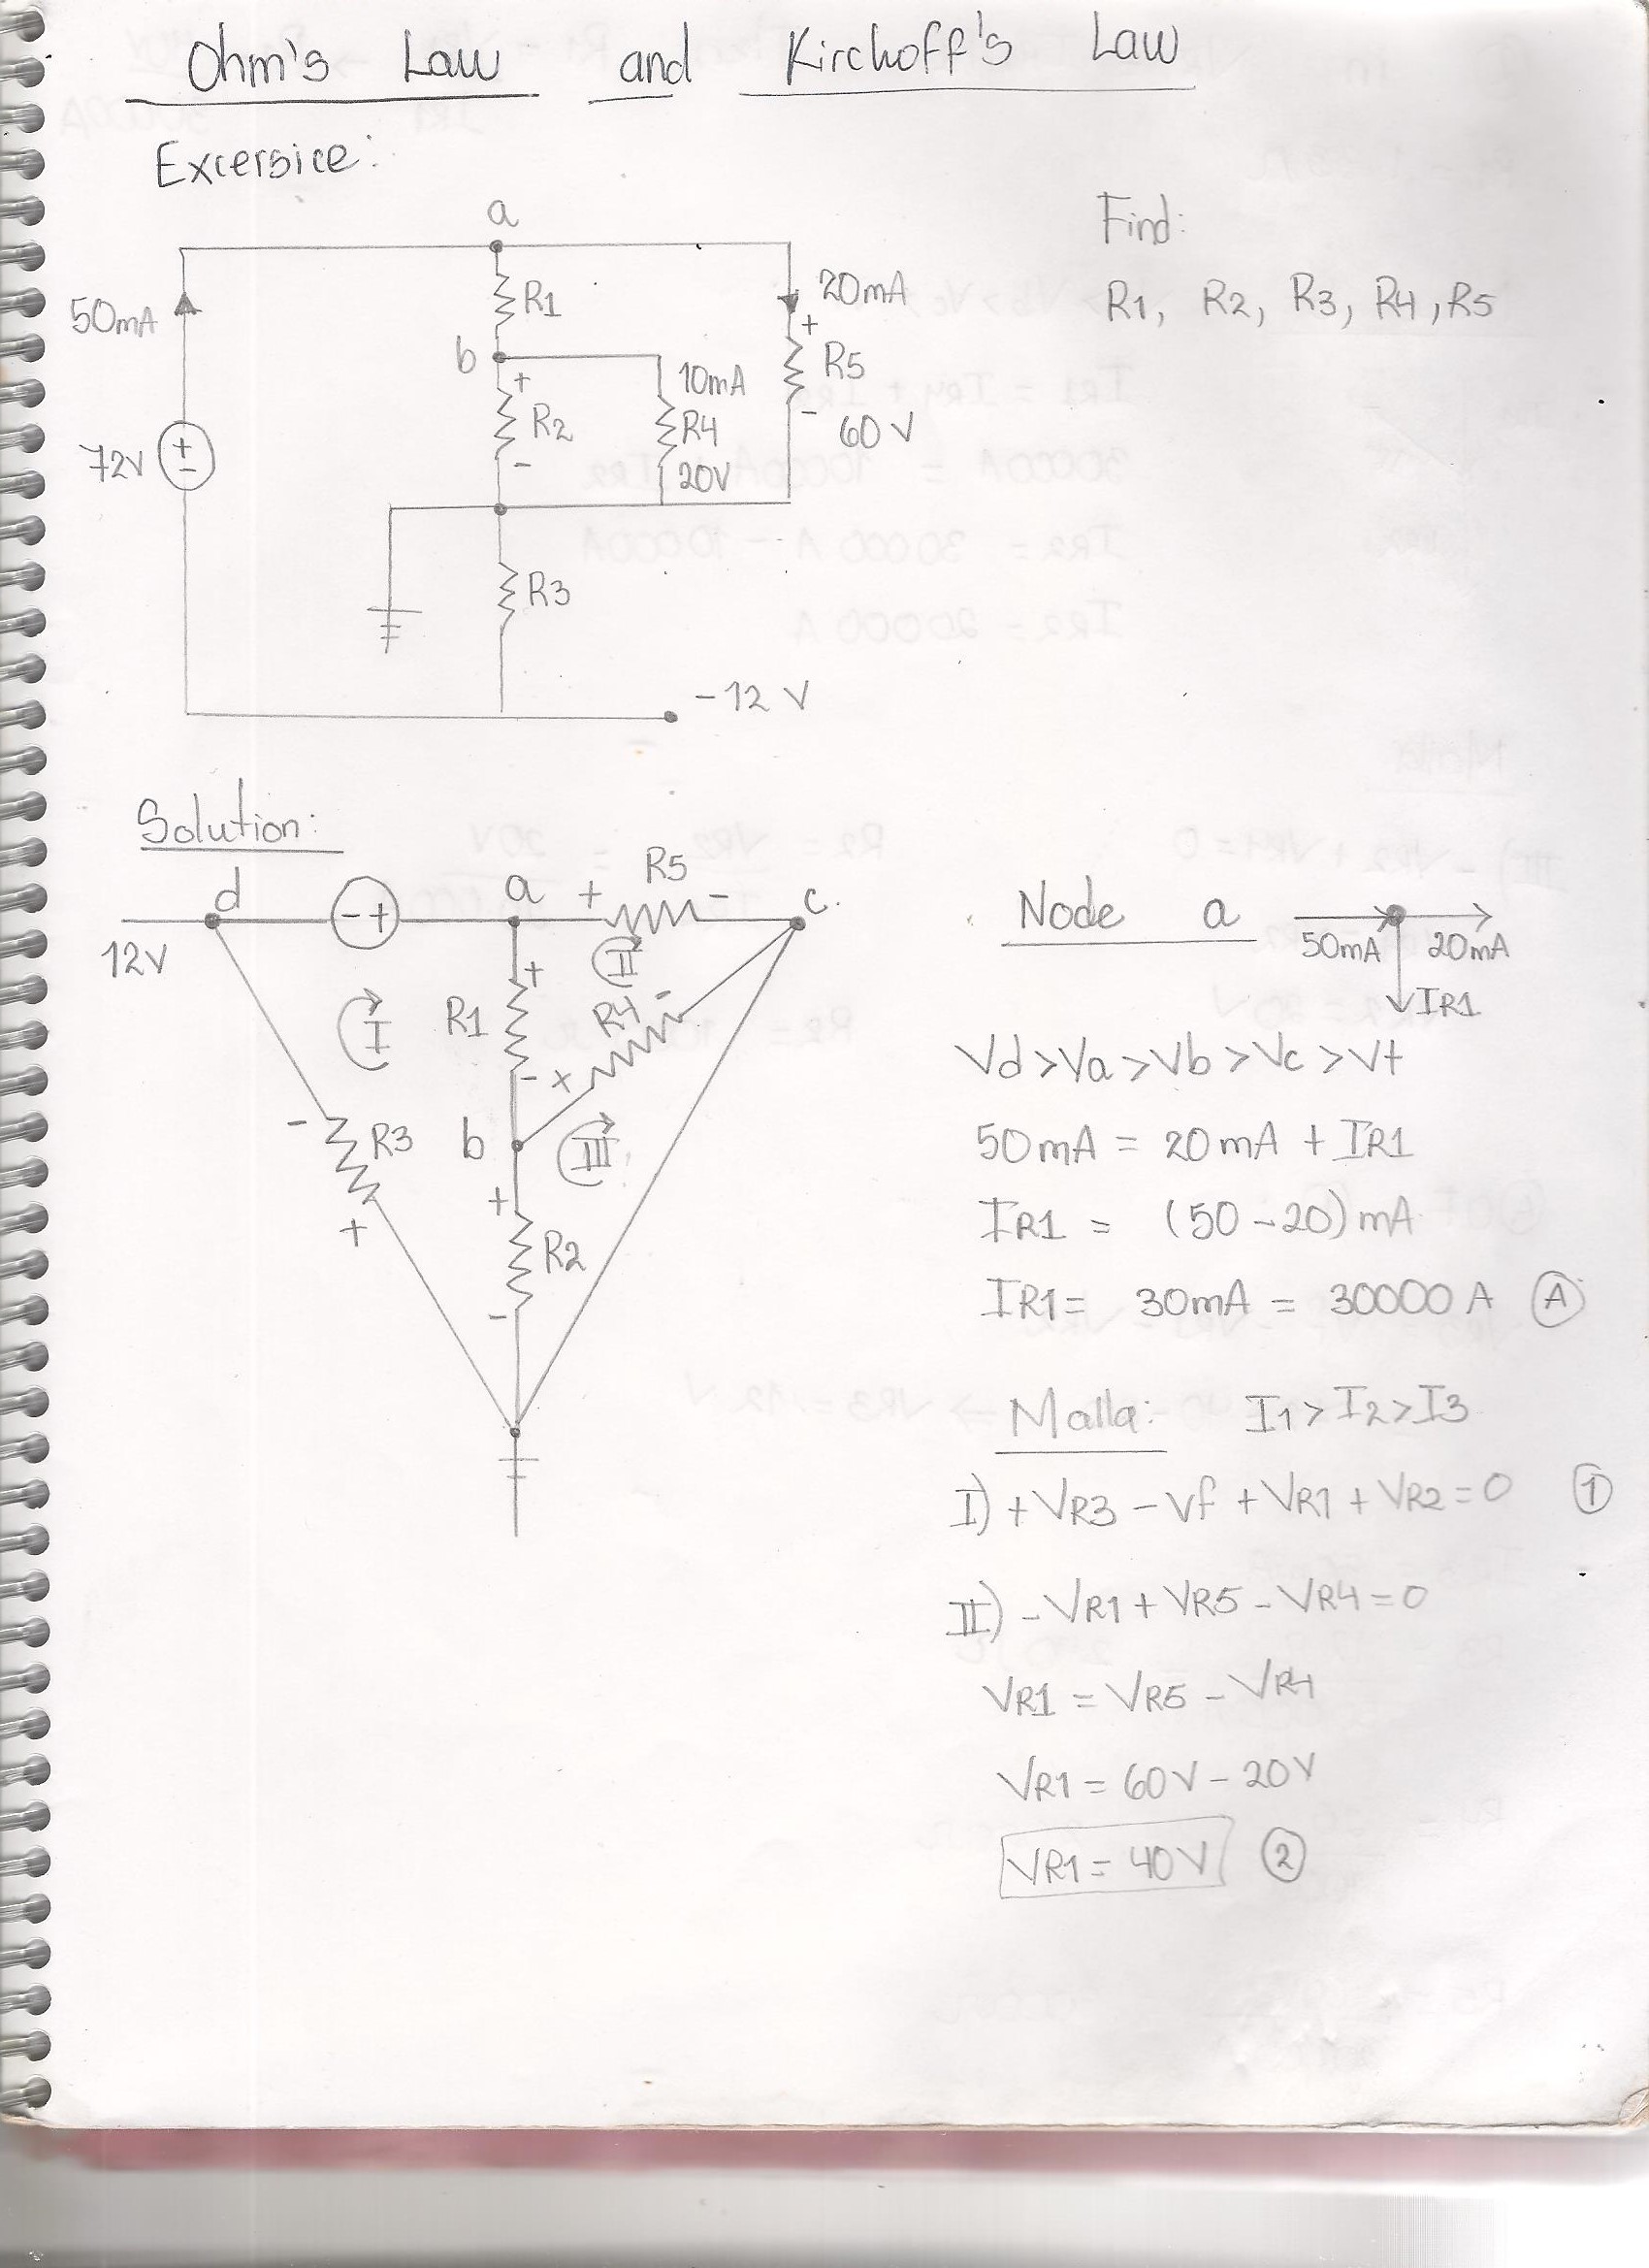 Ohm's Law and Kirchoff's Law
Excersice:
Find:
R1, R2, R3, R4, R5
a
50mA
R1
20mA
+
R5
-
60V
b
+
R2
-
10mA
R4
20V
72V
+
-
R3
-12 V
Solution:
d
- +
a
+ R5 -
c.
12V
I
II
+
R1
-
+ R4 -
b
III
-
R3
+
+
R2
-
Node a
50mA 20mA
IR1
Vd>Va>Vb>Vc>Vt
50mA = 20mA + IR1
IR1 = (50-20)mA
IR1= 30mA = 30000 A A
Malla: I1>I2>I3
I) +VR3 - Vf + VR1 + VR2=0 1
II) -VR1 + VR5 - VR4=0
VR1 = VR5 - VR4
VR1= 60V - 20V
VR1= 40V 2